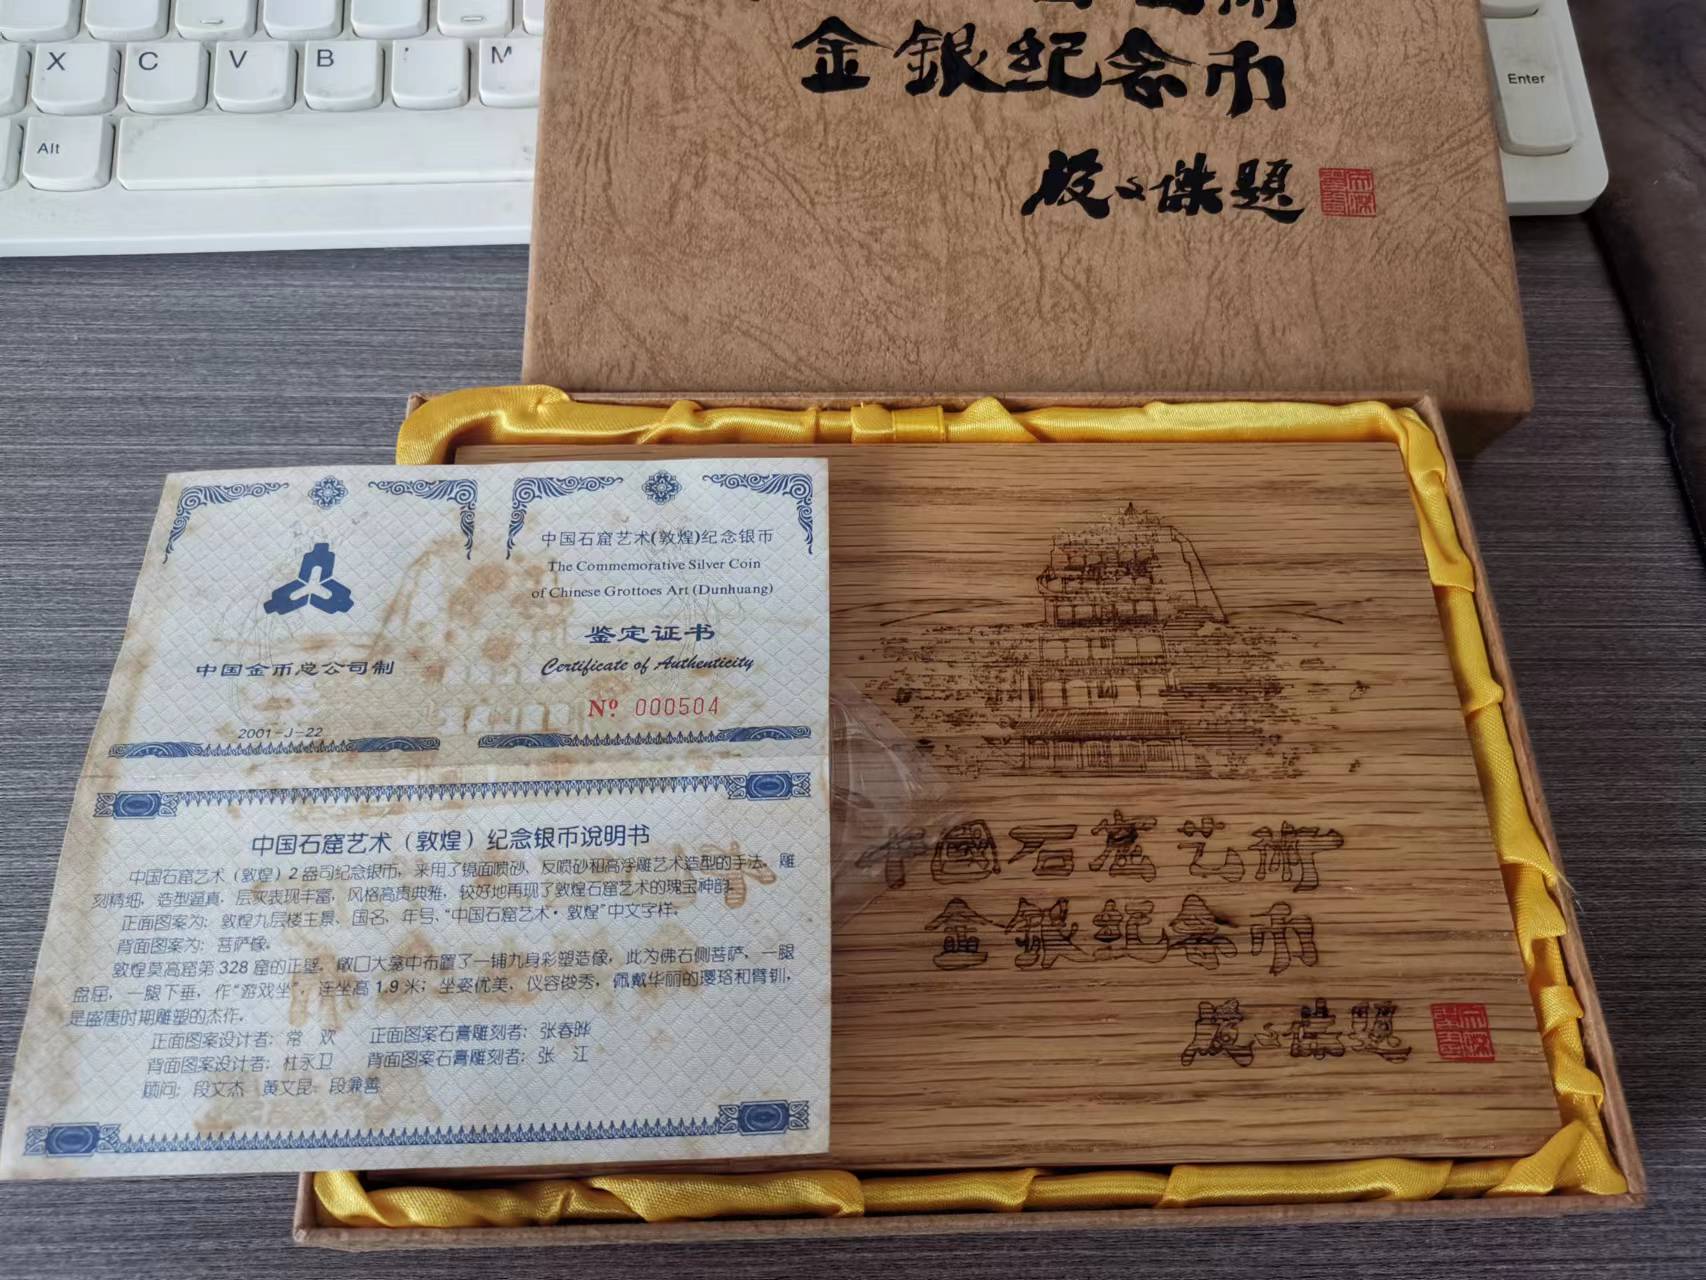 X C V B M
Enter
Alt
金銀纪念币
段文傑題
中国石窟艺术(敦煌)纪念银币
The Commemorative Silver Coin
of Chinese Grottoes Art (Dunhuang)
鉴定证书
中国金币总公司制
Certificate of Authenticity
Nº 000504
2001-J-22
中国石窟艺术（敦煌）纪念银币说明书
中国石窟艺术（敦煌）2盎司纪念银币，采用了镜面喷砂、反喷砂和高浮雕艺术造型的手法，雕
刻精细，造型逼真，层次表现丰富，风格高贵典雅，较好地再现了敦煌石窟艺术的瑰宝神韵。
正面图案为：敦煌九层楼主景、国名、年号、“中国石窟艺术·敦煌”中文字样。
背面图案为：菩萨像。
敦煌莫高窟第328窟的正壁，敞口大龛中布置了一铺九身彩塑造像，此为佛右侧菩萨，一腿
盘屈，一腿下垂，作“游戏坐”，连坐高1.9米；坐姿优美，仪容俊秀，佩戴华丽的璎珞和臂钏，
是盛唐时期雕塑的杰作。
正面图案设计者：常 欢 正面图案石膏雕刻者：张春晔
背面图案设计者：杜永卫 背面图案石膏雕刻者：张 江
顾问：段文杰 黄文昆 段兼善
中國石窟艺術
金銀纪念币
段文傑題